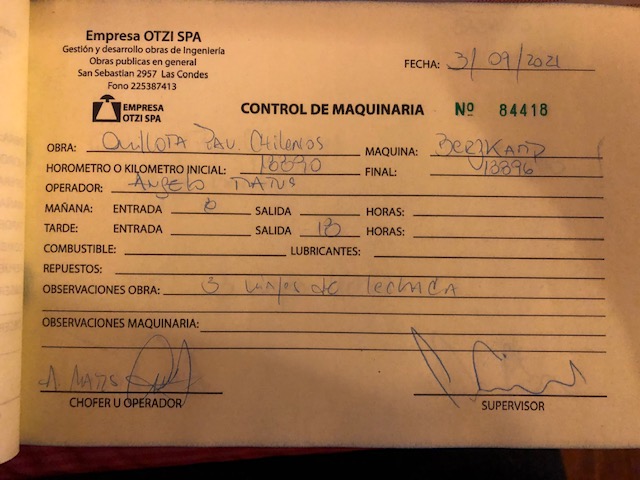 Empresa OTZI SPA
Gestión y desarrollo obras de Ingeniería
Obras publicas en general
San Sebastian 2957 Las Condes
Fono 225387413
FECHA: 3/09/2021
EMPRESA
OTZI SPA
CONTROL DE MAQUINARIA Nº 84418
OBRA: Quillota Pav. Chilenos MAQUINA:
HOROMETRO O KILOMETRO INICIAL: 18890 FINAL: 18896
OPERADOR: Angelo
MAÑANA: ENTRADA 8 SALIDA HORAS:
TARDE: ENTRADA SALIDA 18 HORAS:
COMBUSTIBLE: LUBRICANTES:
REPUESTOS:
OBSERVACIONES OBRA: 3 viajes de lechada
OBSERVACIONES MAQUINARIA:
CHOFER U OPERADOR SUPERVISOR